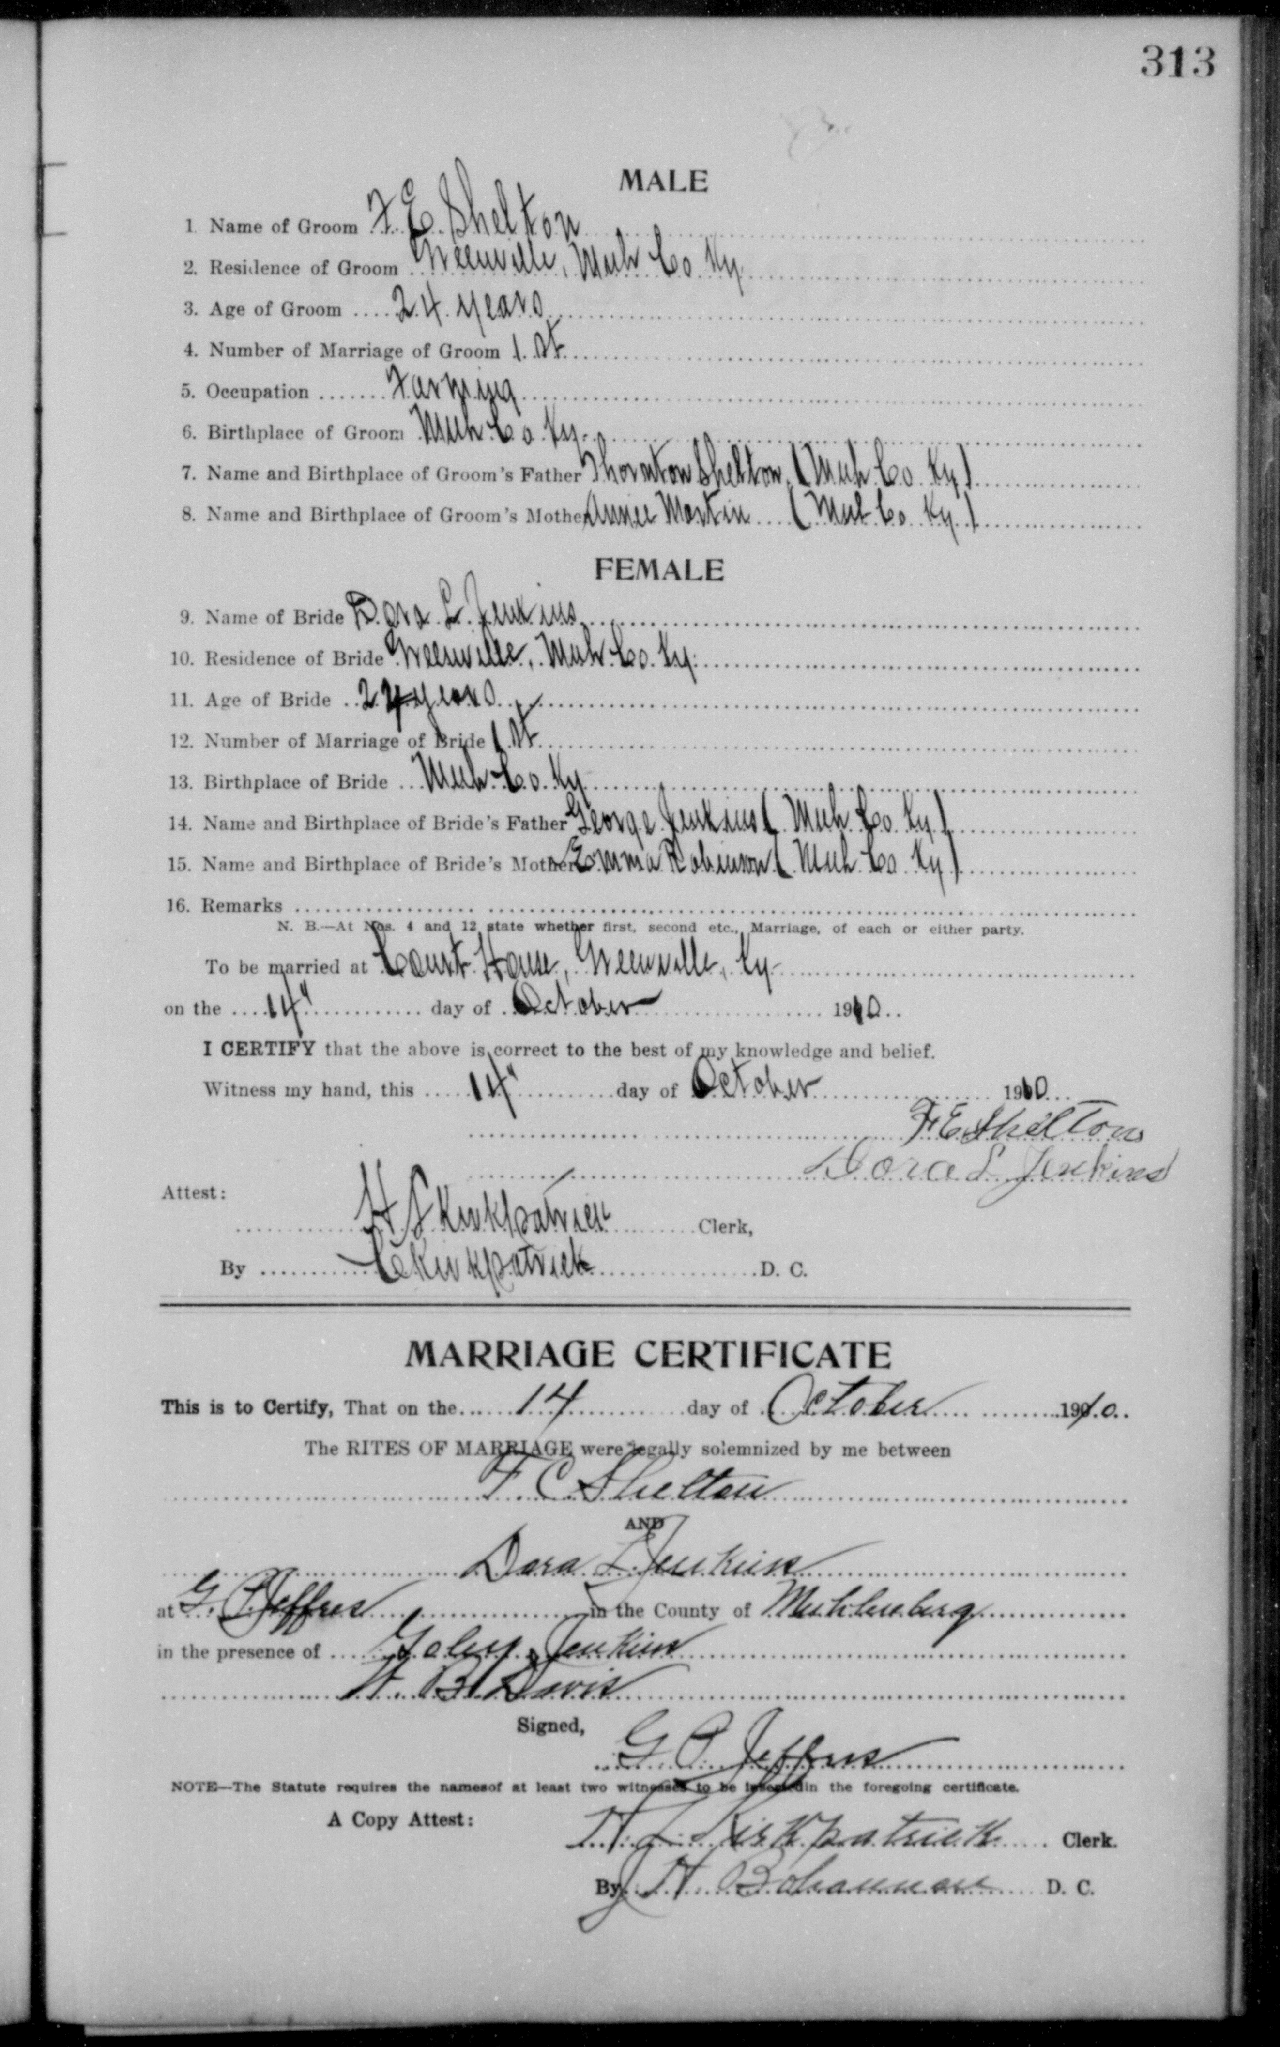 313
MALE
1. Name of Groom F. E. Shelton
2. Residence of Groom Greenville, Muh Co Ky.
3. Age of Groom 24 years
4. Number of Marriage of Groom 1 st
5. Occupation Farming
6. Birthplace of Groom Muh Co Ky.
7. Name and Birthplace of Groom's Father Thornton Shelton (Muh Co Ky)
8. Name and Birthplace of Groom's Mother Annie Martin (Muh Co Ky)
FEMALE
9. Name of Bride Dora L. Jenkins
10. Residence of Bride Greenville, Muh Co. Ky.
11. Age of Bride 24 years
12. Number of Marriage of Bride 1 st
13. Birthplace of Bride Muh Co Ky
14. Name and Birthplace of Bride's Father George Jenkins (Muh Co Ky)
15. Name and Birthplace of Bride's Mother Emma Robinson (Muh Co Ky)
16. Remarks
N. B.—At Nos. 4 and 12 state whether first, second etc., Marriage, of each or either party.
To be married at Court House, Greenville, Ky
on the 14" day of October 1910
I CERTIFY that the above is correct to the best of my knowledge and belief.
Witness my hand, this 14" day of October 1910
F. E. Shelton
Dora L Jenkins
Attest:
H L Kirkpatrick Clerk,
By C Kirkpatrick D. C.
MARRIAGE CERTIFICATE
This is to Certify, That on the 14 day of October 1910
The RITES OF MARRIAGE were legally solemnized by me between
F. C Shelton
AND
Dora L Jenkins
at G. P Jeffres in the County of Muhlenberg
in the presence of Jenkins
Davis
Signed,
G P. Jeffres
NOTE—The Statute requires the namesof at least two witnesses to be insertedin the foregoing certificate.
A Copy Attest:
H L Kirkpatrick Clerk.
By J H Bohannan D. C.